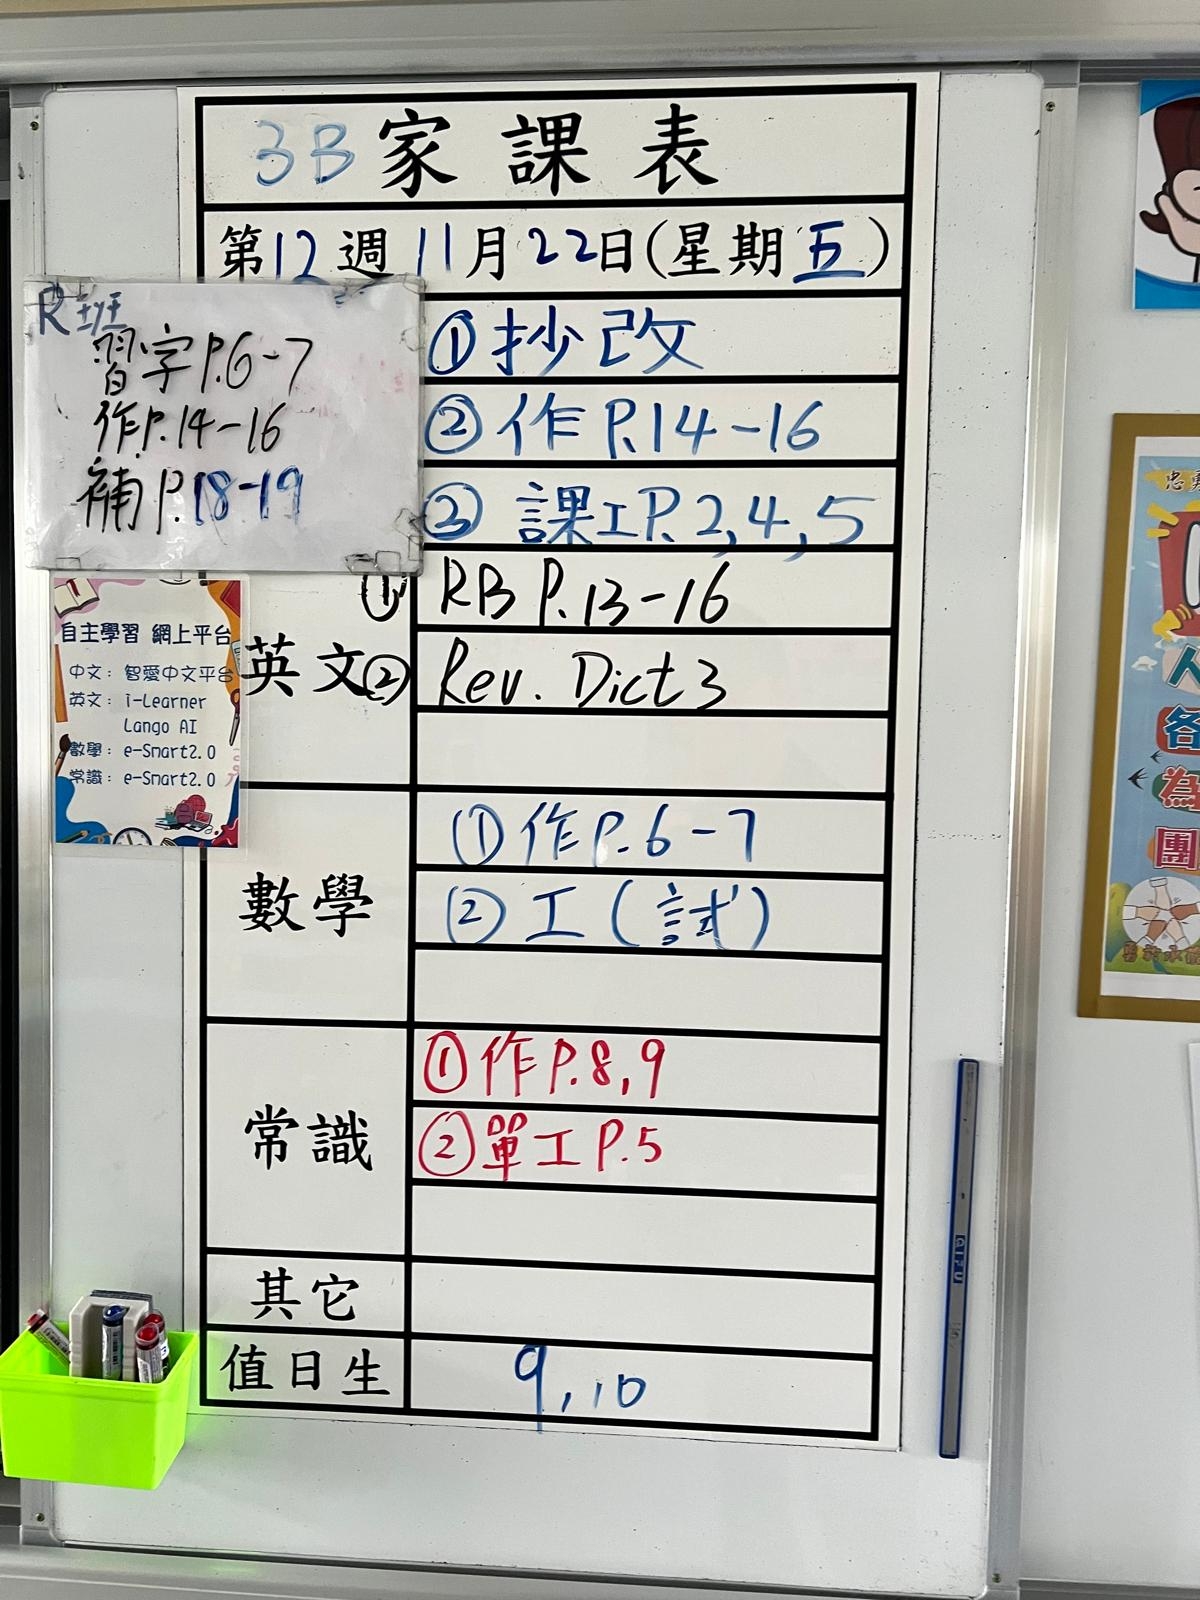 3B 家課表
第12週 11月22日(星期五)
R班
習字 P.6-7
作P.14-16
補 P.18-19
① 抄改
② 作 P.14-16
③ 課工P.2,4,5
英文
① RB P.13-16
② Rev. Dict 3
自主學習 網上平台
中文： 智愛中文平台
英文： i-Learner
Lango AI
數學： e-Smart2.0
常識： e-Smart2.0
數學
① 作P.6-7
② 工(試)
常識
① 作P.8,9
② 單工 P.5
其它
值日生
9,10
人
各
為
團